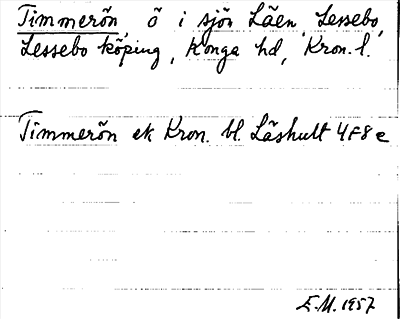 Timmerön, ö i sjön Läen, Lessebo,
Lessebo köping, Konga hd, Kron. l.
Timmerön ek Kron. bl. Låshult 4F8e
E.M. 1957